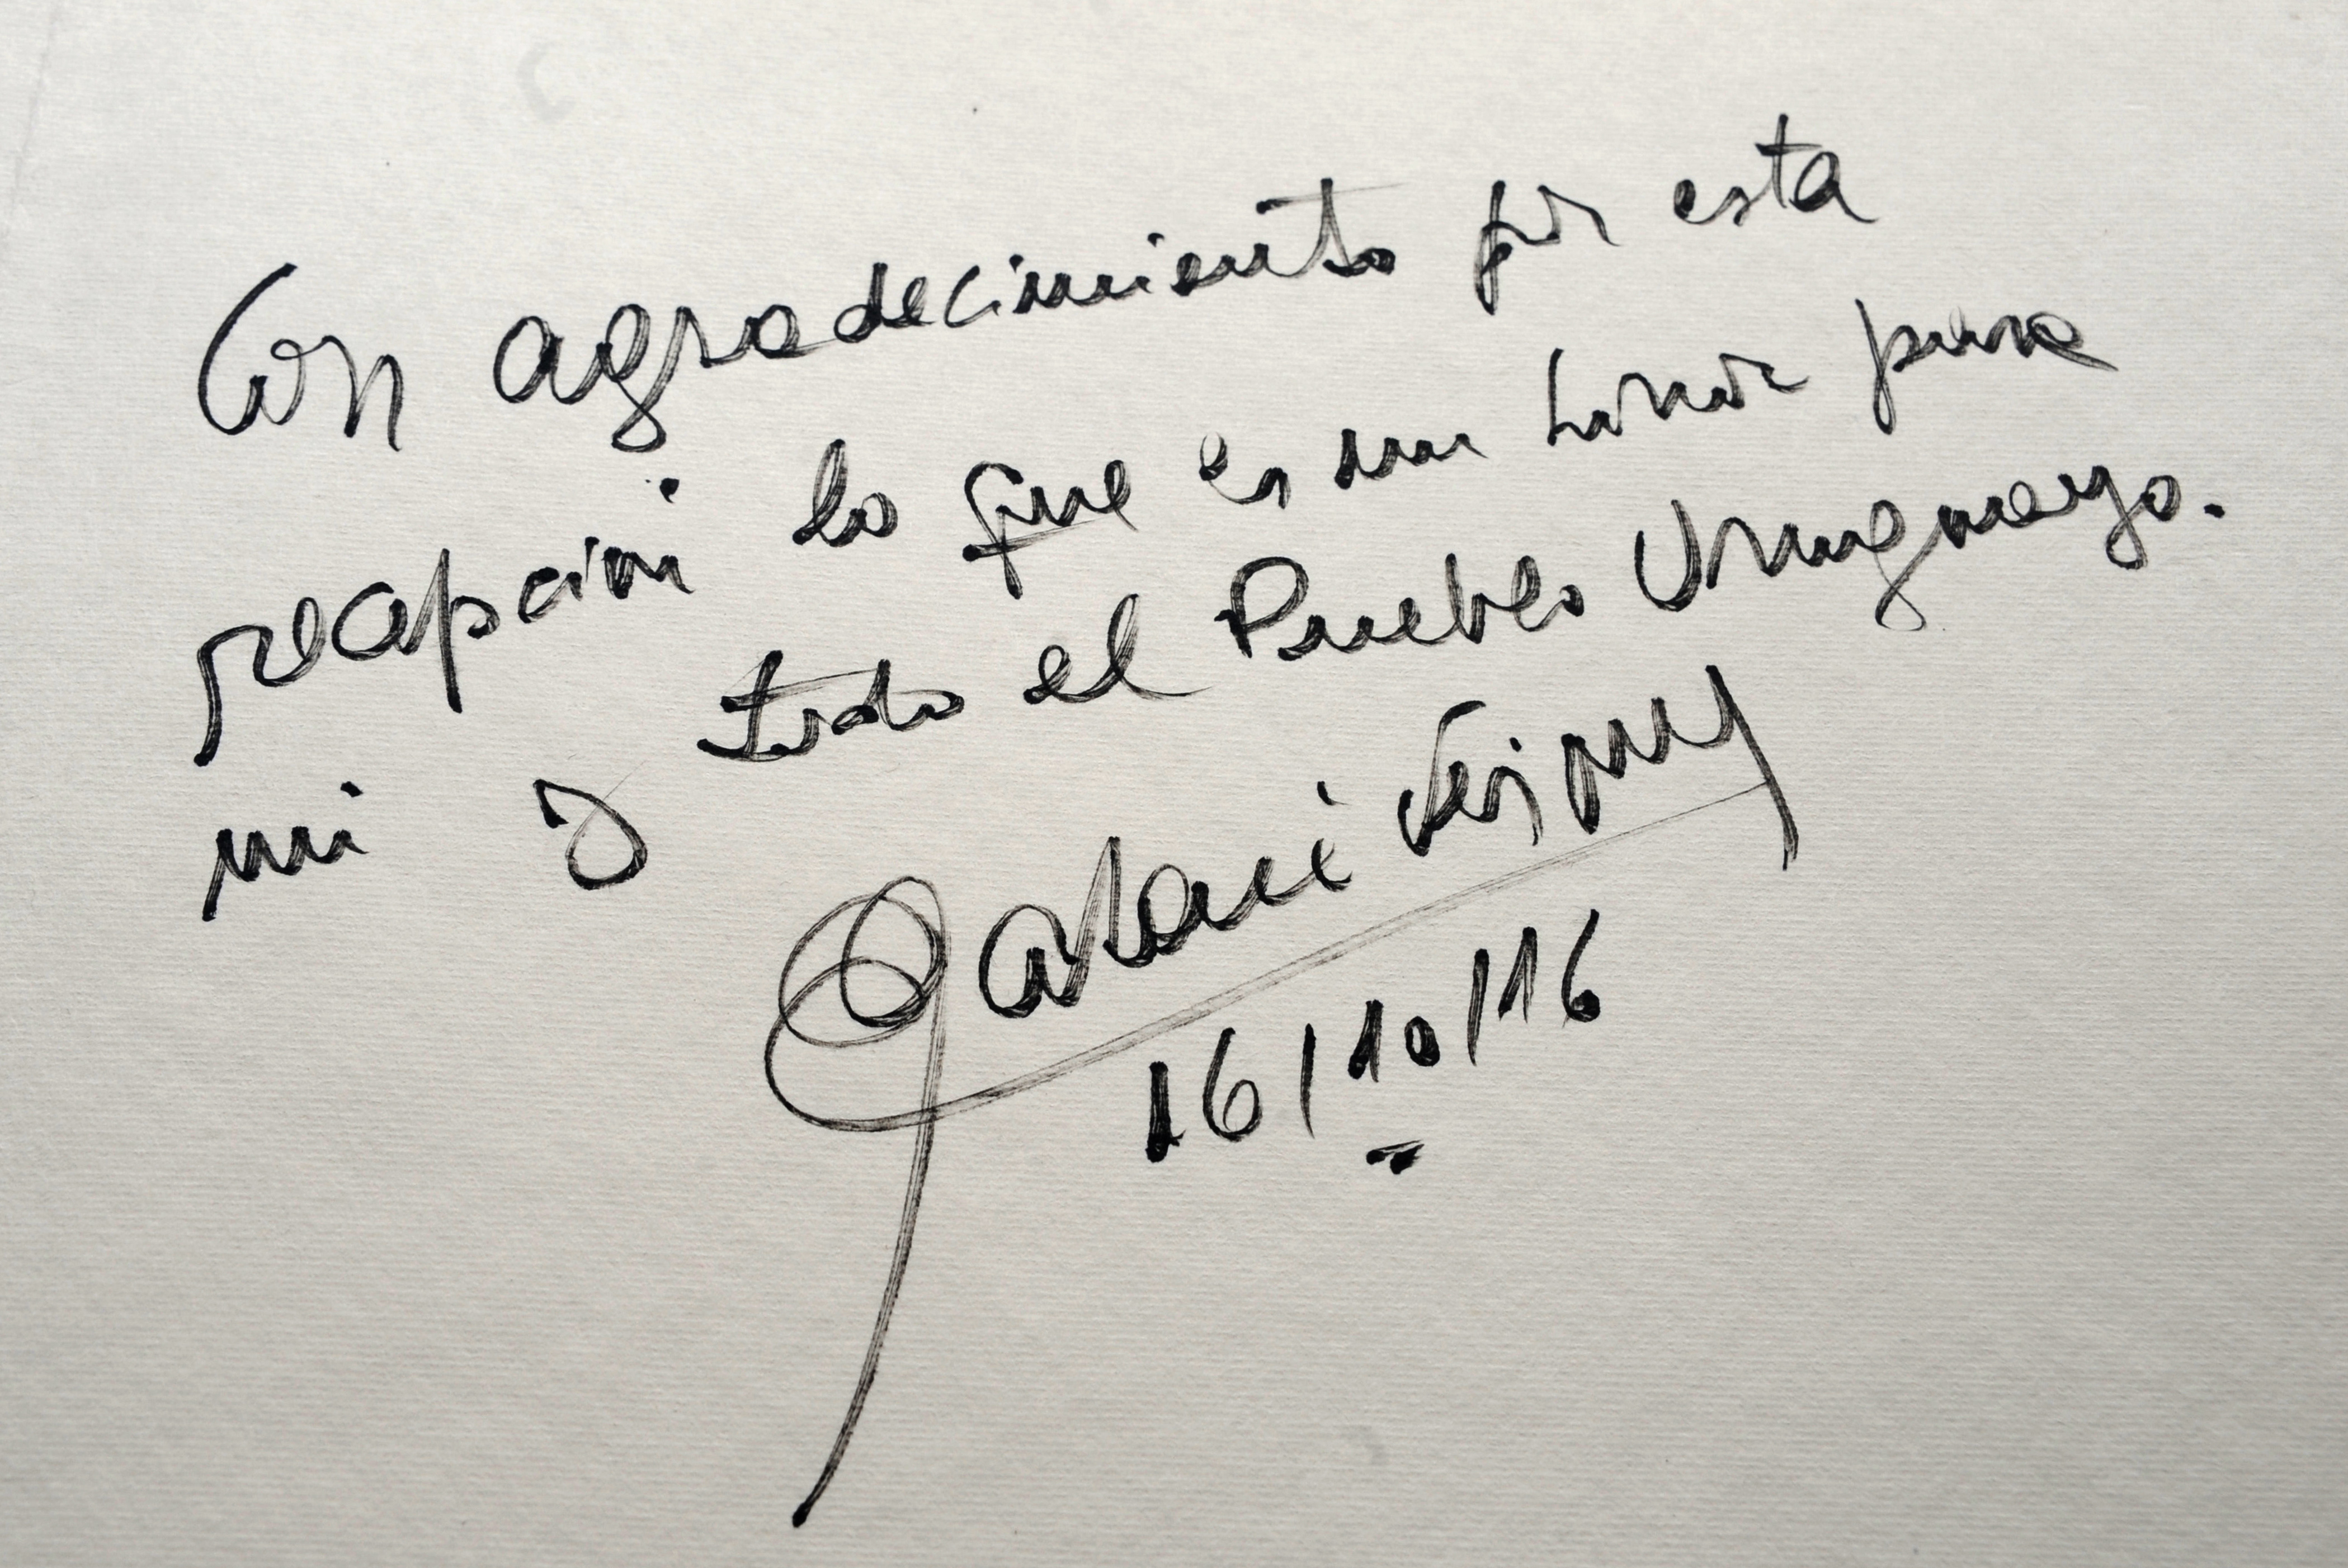 Con agradecimiento por esta
recepción lo que es un honor para
mi y todo el Pueblo Uruguayo.
16/10/116